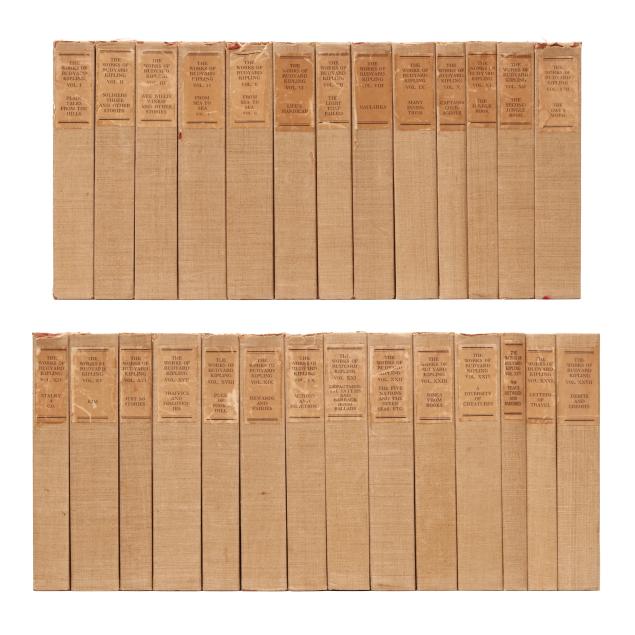 THE
WORKS OF
RUDYARD
KIPLING
VOL. I
PLAIN
TALES
FROM THE
HILLS
THE
WORKS OF
RUDYARD
KIPLING
VOL. II
SOLDIERS
THREE
AND OTHER
STORIES
THE
WORKS OF
RUDYARD
KIPLING
VOL. III
WEE WILLIE
WINKIE
AND OTHER
STORIES
THE
WORKS OF
RUDYARD
KIPLING
VOL. IV
FROM
SEA TO
SEA
VOL. I
THE
WORKS OF
RUDYARD
KIPLING
VOL. V
FROM
SEA TO
SEA
VOL. II
THE
WORKS OF
RUDYARD
KIPLING
VOL. VI
LIFE'S
HANDICAP
THE
WORKS OF
RUDYARD
KIPLING
VOL. VII
THE
LIGHT
THAT
FAILED
THE
WORKS OF
RUDYARD
KIPLING
VOL. VIII
NAULAHKA
THE
WORKS OF
RUDYARD
KIPLING
VOL. IX
MANY
INVEN-
TIONS
THE
WORKS OF
RUDYARD
KIPLING
VOL. X
CAPTAINS
COUR-
AGEOUS
THE
WORKS OF
RUDYARD
KIPLING
VOL. XI
THE
JUNGLE
BOOK
THE
WORKS OF
RUDYARD
KIPLING
VOL. XII
THE
SECOND
JUNGLE
BOOK
THE
WORKS OF
RUDYARD
KIPLING
VOL. XIII
THE
DAY'S
WORK
THE
WORKS OF
RUDYARD
KIPLING
STALKY
& CO.
THE
WORKS OF
RUDYARD
KIPLING
VOL. XV
KIM
THE
WORKS OF
RUDYARD
KIPLING
VOL. XVI
JUST SO
STORIES
THE
WORKS OF
RUDYARD
KIPLING
VOL. XVII
TRAFFICS
AND
DISCOVER-
IES
THE
WORKS OF
RUDYARD
KIPLING
VOL. XVIII
PUCK
OF
POOK'S
HILL
THE
WORKS OF
RUDYARD
KIPLING
VOL. XIX
REWARDS
AND
FAIRIES
THE
WORKS OF
RUDYARD
KIPLING
VOL. XX
ACTIONS
AND
REACTIONS
THE
WORKS OF
RUDYARD
KIPLING
VOL. XXI
DEPARTMENTAL
DITTIES
AND
BARRACK
ROOM
BALLADS
THE
WORKS OF
RUDYARD
KIPLING
VOL. XXII
THE FIVE
NATIONS
AND THE
SEVEN
SEAS, ETC.
THE
WORKS OF
RUDYARD
KIPLING
VOL. XXIII
SONGS
FROM
BOOKS
THE
WORKS OF
RUDYARD
KIPLING
VOL. XXIV
A
DIVERSITY
OF
CREATURES
THE
WORKS OF
RUDYARD
KIPLING
THE
YEARS
BETWEEN
AND
THE
WORKS OF
RUDYARD
KIPLING
LETTERS
OF
TRAVEL
THE
WORKS OF
RUDYARD
KIPLING
DEBITS
AND
CREDITS